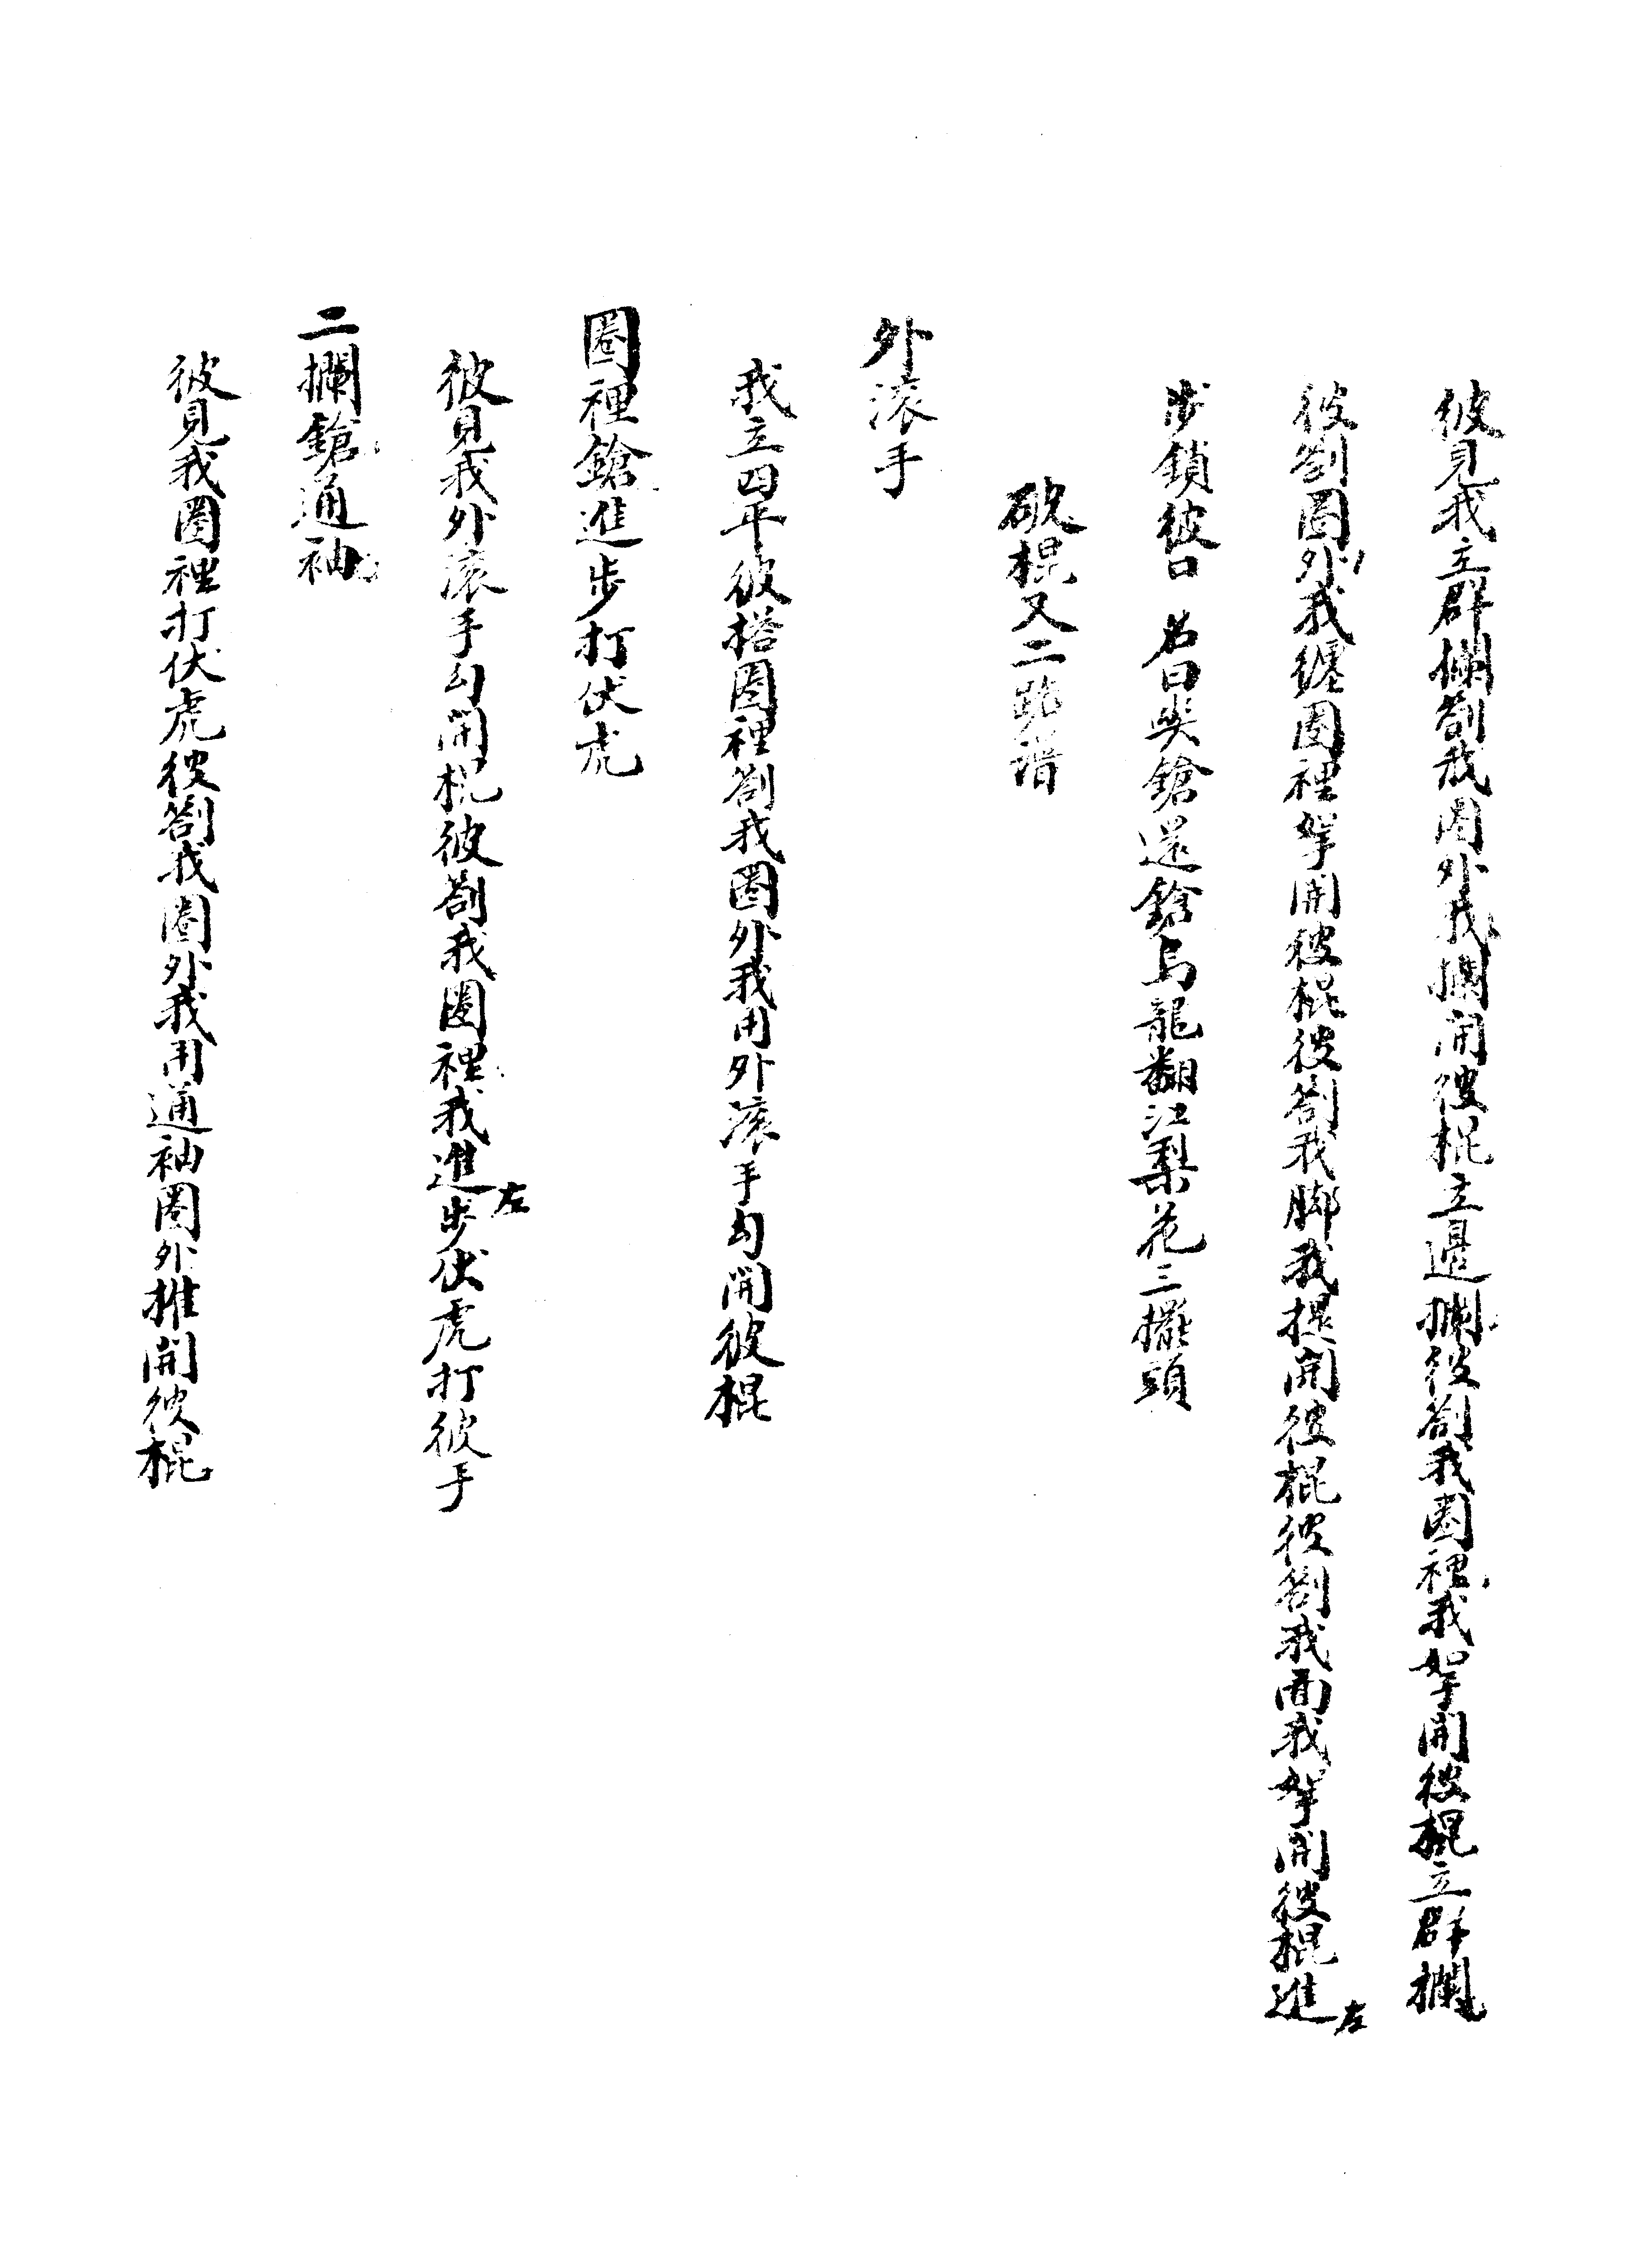 彼見我立群攔劄我圈外我攔開彼棍立邊攔彼劄我圈裡我拏開彼棍立群攔
彼劄圈外我纏圈裡拏開彼棍彼劄我脚我提開彼棍彼劄我面我拏開彼棍進左
步鎖彼口 名曰喫鎗還鎗烏龍翻江梨花三擺頭
破棍又二路譜
外滚手
我立四平彼搭圈裡劄我圈外我用外滚手勾開彼棍
圈裡鎗進步打伏虎
彼見我外滚手勾開棍彼劄我圈裡我進左步伏虎打彼手
二攔鎗通袖
彼見我圈裡打伏虎彼劄我圈外我用通袖圈外推開彼棍